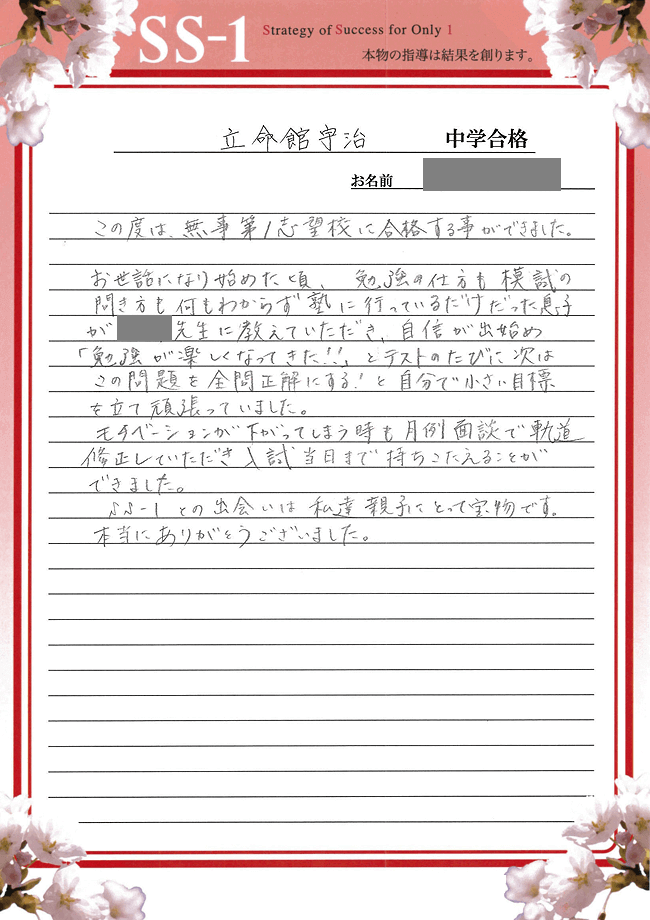 SS-1
Strategy of Success for Only 1
本物の指導は結果を創ります。
立命館宇治 中学合格
お名前
この度は、無事第1志望校に合格する事ができました。
お世話になり始めた頃、勉強の仕方も模試の
聞き方も何もわからず塾に行っているだけだった息子
が 先生に教えていただき、自信が出始め
「勉強が楽しくなってきた!!」とテストのたびに次は
この問題を全問正解にする!と自分で小さい目標
を立て頑張っていました。
モチベーションが下がってしまう時も月例面談で軌道
修正していただき入試当日まで持ちこたえることが
できました。
SS-1との出会いは私達親子にとって宝物です。
本当にありがとうございました。